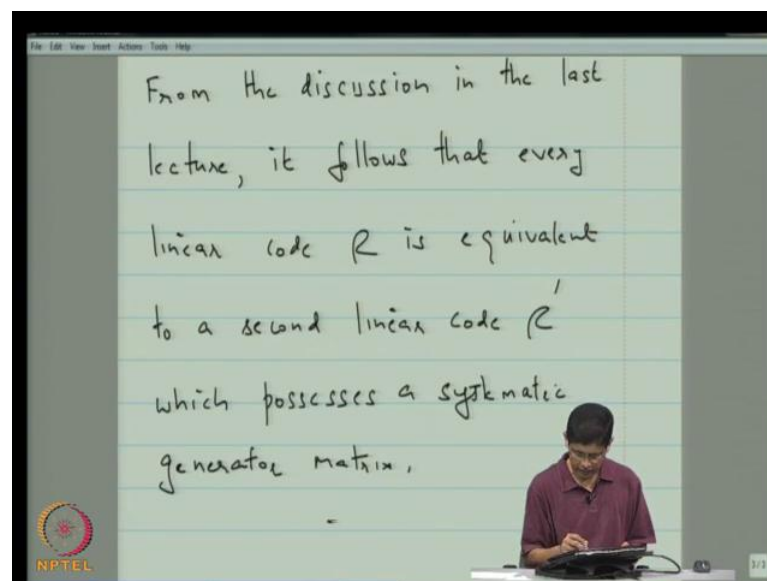 File Edit View Insert Actions Tools Help
From the discussion in the last
lecture, it follows that every
linear code C is equivalent
to a second linear code C'
which possesses a systematic
generator matrix.
NPTEL
3/3